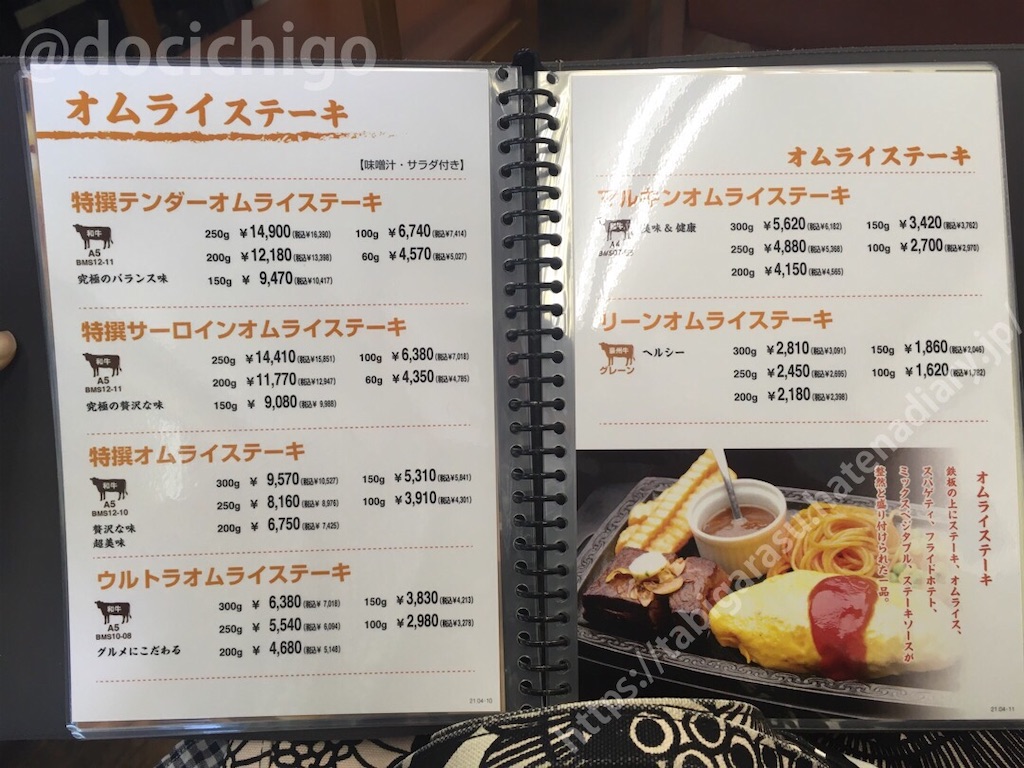 @docichigo
オムライステーキ
【味噌汁・サラダ付き】
特撰テンダーオムライステーキ
和牛
A5
BMS12-11
究極のバランス味
250g ¥14,900(税込¥16,390) 100g ¥6,740(税込¥7,414)
200g ¥12,180(税込¥13,398) 60g ¥4,570(税込¥5,027)
150g ¥9,470(税込¥10,417)
特撰サーロインオムライステーキ
和牛
A5
BMS12-11
究極の贅沢な味
250g ¥14,410(税込¥15,851) 100g ¥6,380(税込¥7,018)
200g ¥11,770(税込¥12,947) 60g ¥4,350(税込¥4,785)
150g ¥9,080(税込¥9,988)
特撰オムライステーキ
和牛
A5
BMS12-10
贅沢な味
超美味
300g ¥9,570(税込¥10,527) 150g ¥5,310(税込¥5,841)
250g ¥8,160(税込¥8,976) 100g ¥3,910(税込¥4,301)
200g ¥6,750(税込¥7,425)
ウルトラオムライステーキ
和牛
A5
BMS10-08
グルメにこだわる
300g ¥6,380(税込¥7,018) 150g ¥3,830(税込¥4,213)
250g ¥5,540(税込¥6,094) 100g ¥2,980(税込¥3,278)
200g ¥4,680(税込¥5,148)
21.04-10
オムライステーキ
マルキンオムライステーキ
A4
美味&健康
300g ¥5,620(税込¥6,182) 150g ¥3,420(税込¥3,762)
250g ¥4,880(税込¥5,368) 100g ¥2,700(税込¥2,970)
200g ¥4,150(税込¥4,565)
リーンオムライステーキ
豪州牛
グレーン
ヘルシー
300g ¥2,810(税込¥3,091) 150g ¥1,860(税込¥2,046)
250g ¥2,450(税込¥2,695) 100g ¥1,620(税込¥1,782)
200g ¥2,180(税込¥2,398)
オムライステーキ
鉄板の上にステーキ、オムライス、
スパゲティ、フライドポテト、
ミックスベジタブル、ステーキソースが
整然と盛り付けられた一品。
21.04-11
https://tabigarasu.hatenadiary.jp/